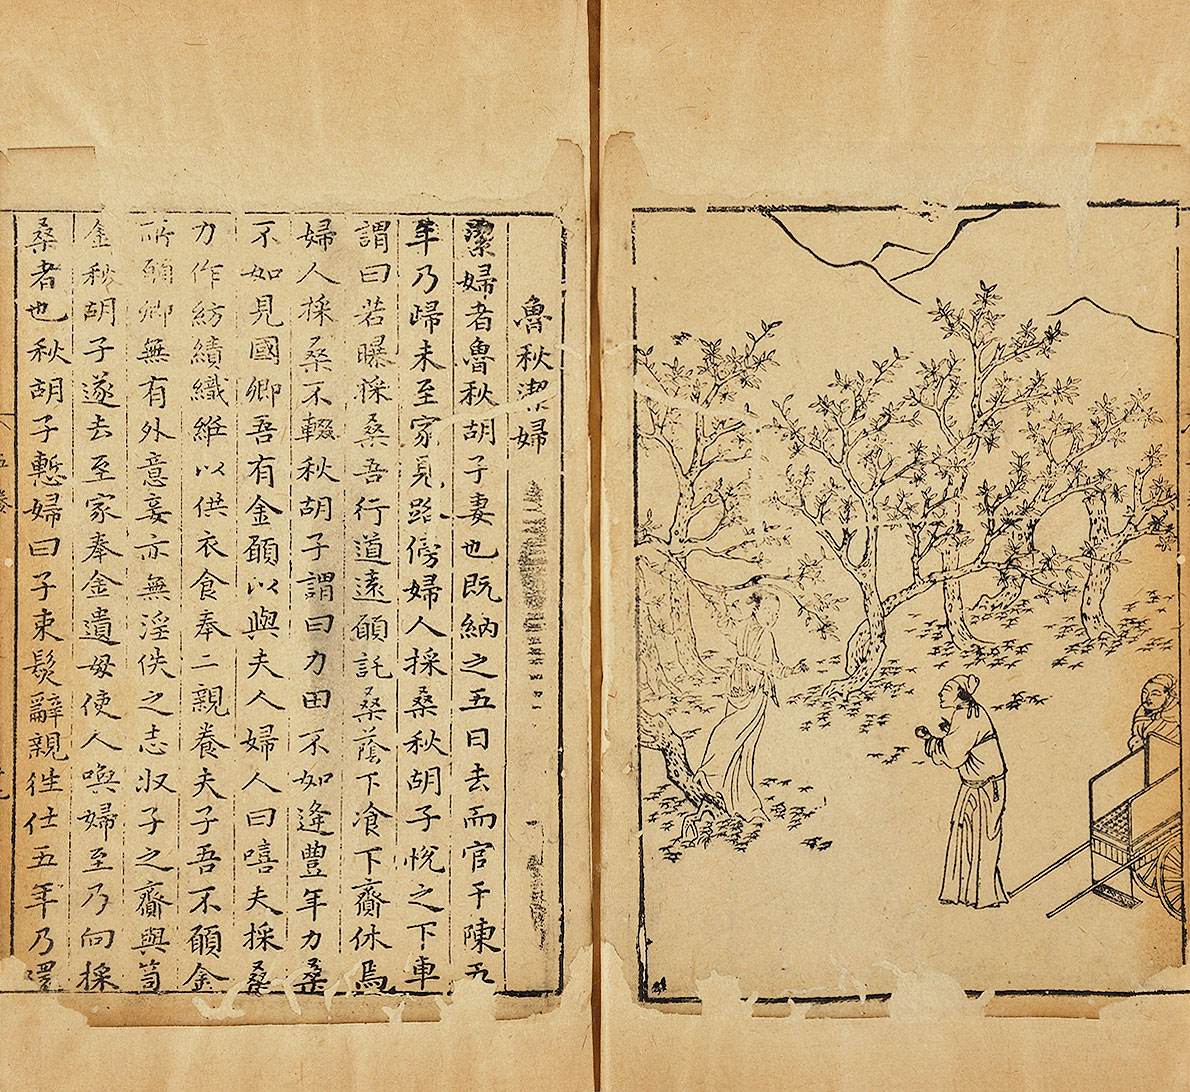 魯秋潔婦
潔婦者魯秋胡子妻也既納之五日去而官于陳五
年乃歸未至家見路傍婦人採桑秋胡子悅之下車
謂曰若曝採桑吾行道遠願託桑蔭下飡下齎休焉
婦人採桑不輟秋胡子謂曰力田不如逢豐年力桑
不如見國卿吾有金願以與夫人婦人曰嘻夫採桑
力作紡績織紝以供衣食奉二親養夫子吾不願金
所願卿無有外意妾亦無淫佚之志收子之齎與笥
金秋胡子遂去至家奉金遺母使人喚婦至乃向採
桑者也秋胡子慙婦曰子束髮辭親徃仕五年乃還